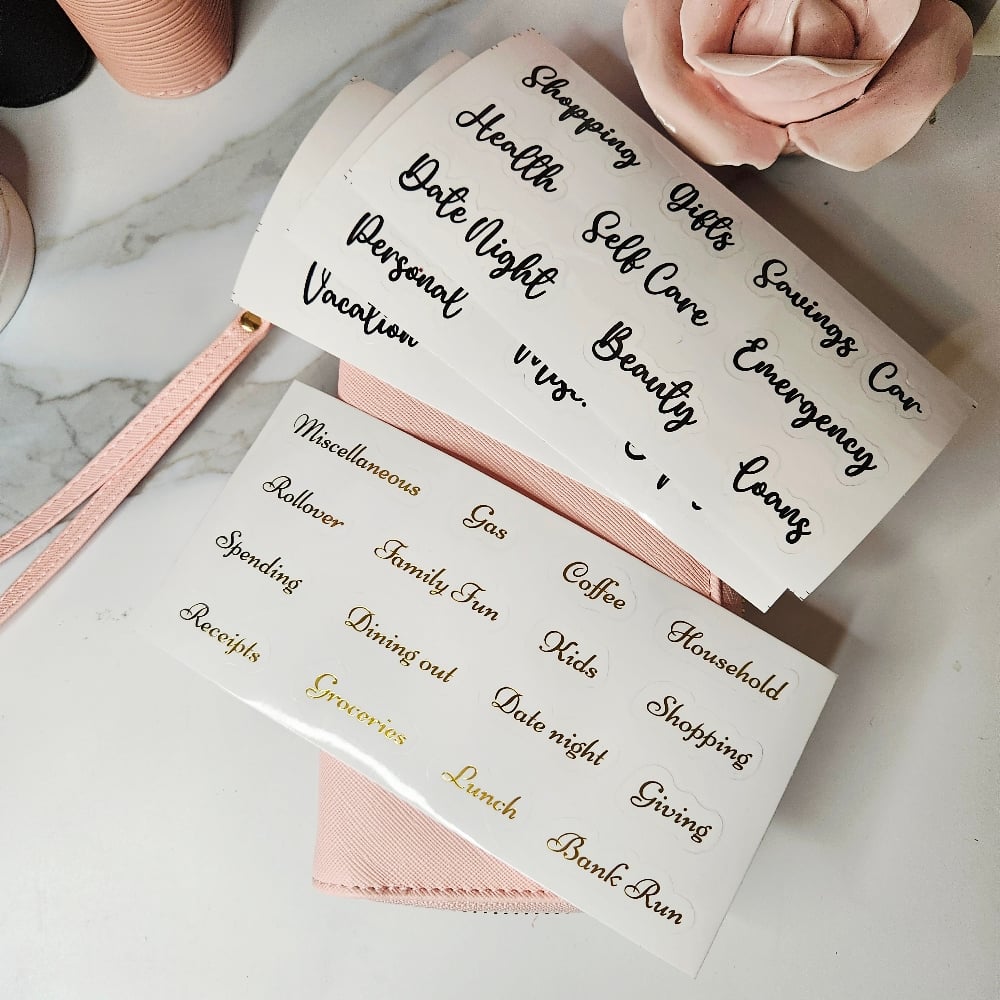 Shopping
Health
Gifts
Date Night
Self Care
Savings
Car
Personal
Beauty
Emergency
Vacation
Loans
Miscellaneous
Gas
Coffee
Household
Rollover
Family Fun
Kids
Shopping
Spending
Dining out
Date night
Giving
Receipts
Groceries
Lunch
Bank Run